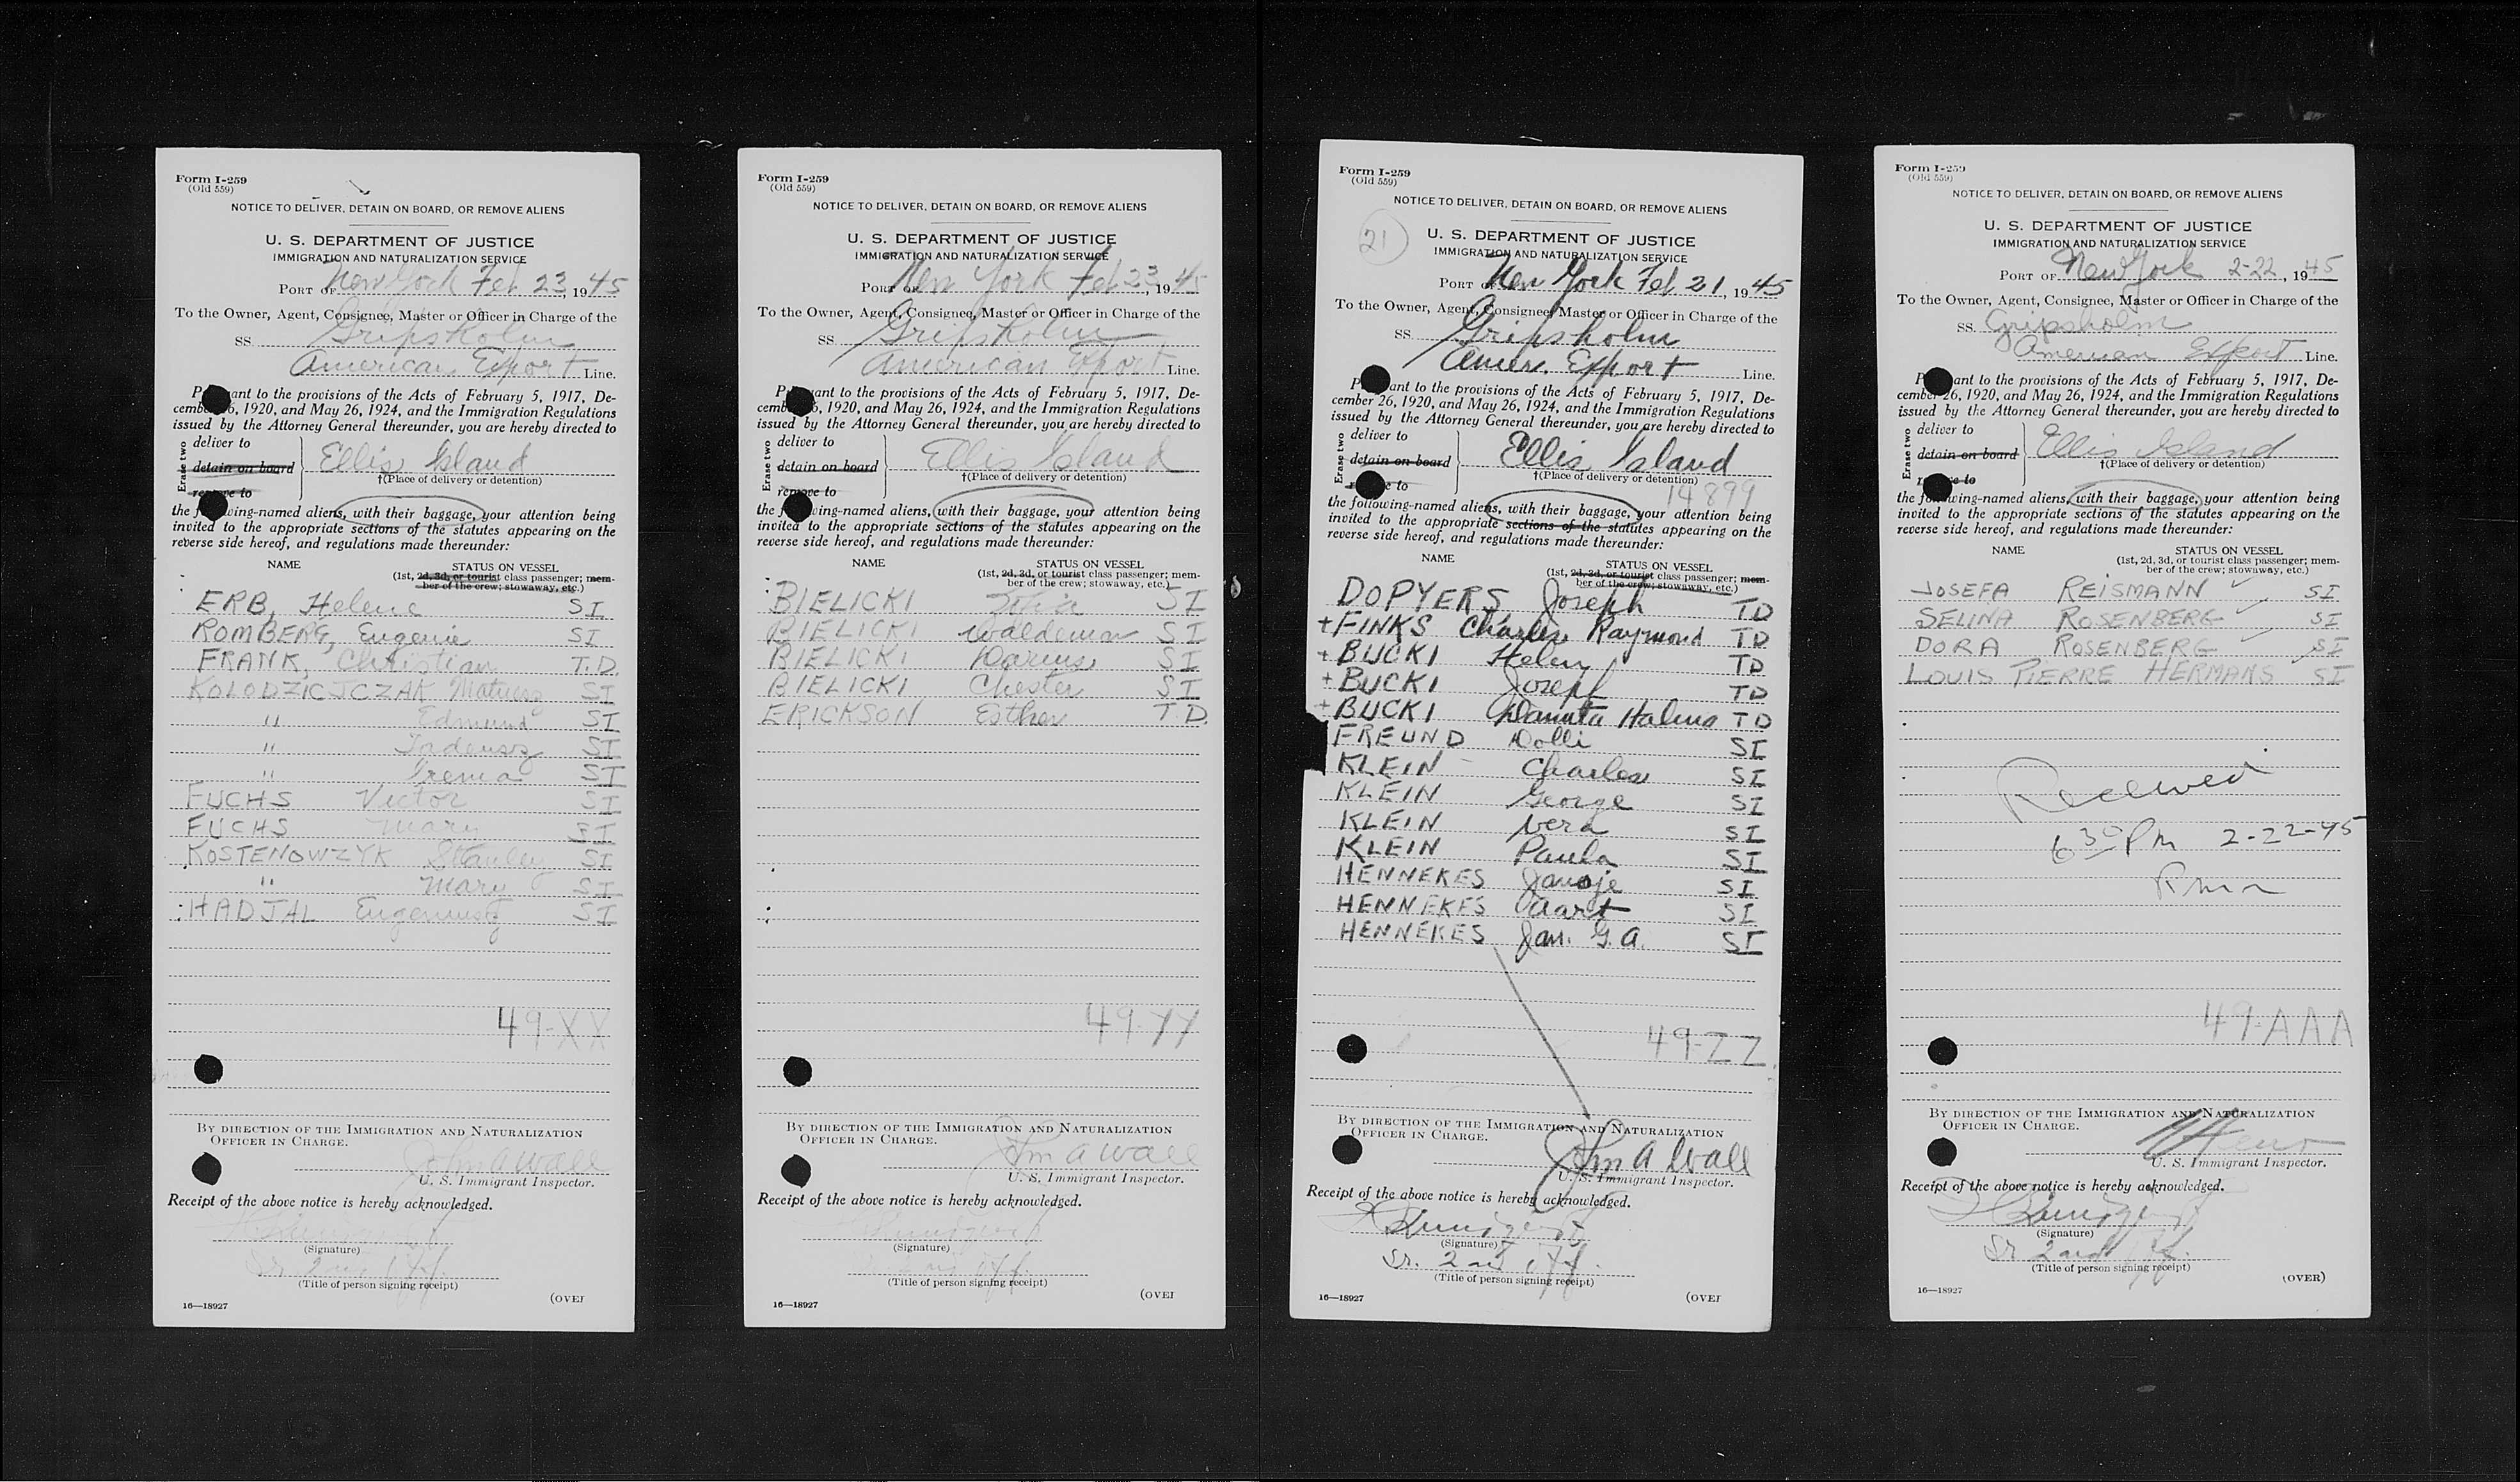 Form I-259
(Old 559)
NOTICE TO DELIVER, DETAIN ON BOARD, OR REMOVE ALIENS
U. S. DEPARTMENT OF JUSTICE
IMMIGRATION AND NATURALIZATION SERVICE
PORT OF New York Feb 23, 1945
To the Owner, Agent, Consignee, Master or Officer in Charge of the
SS. Gripsholm
American Export Line.
Pursuant to the provisions of the Acts of February 5, 1917, De-
cember 26, 1920, and May 26, 1924, and the Immigration Regulations
issued by the Attorney General thereunder, you are hereby directed to
Erase two
deliver to
detain on board
remove to
Ellis Island
†(Place of delivery or detention)
the following-named aliens, with their baggage, your attention being
invited to the appropriate sections of the statutes appearing on the
reverse side hereof, and regulations made thereunder:
NAME STATUS ON VESSEL
(1st, 2d, 3d, or tourist class passenger; mem-
ber of the crew; stowaway, etc.)
ERB, Helene SI
ROMBERG, Eugenie SI
FRANK, Christian T.D.
KOLODZICJCZAK SI
" Edmund SI
" Tadeusz SI
" Irena SI
FUCHS Victor SI
FUCHS Mary SI
KOSTENOWZYK Stanley SI
" Mary SI
HADJAL SI
49-XX
BY DIRECTION OF THE IMMIGRATION AND NATURALIZATION
OFFICER IN CHARGE.
John A Wall
U. S. Immigrant Inspector.
Receipt of the above notice is hereby acknowledged.
(Signature)
Sr. 2nd Off.
(Title of person signing receipt)
16—18927 (OVER
Form I-259
(Old 559)
NOTICE TO DELIVER, DETAIN ON BOARD, OR REMOVE ALIENS
U. S. DEPARTMENT OF JUSTICE
IMMIGRATION AND NATURALIZATION SERVICE
PORT OF New York Feb 23, 1945
To the Owner, Agent, Consignee, Master or Officer in Charge of the
SS. Gripsholm
American Export Line.
Pursuant to the provisions of the Acts of February 5, 1917, De-
cember 26, 1920, and May 26, 1924, and the Immigration Regulations
issued by the Attorney General thereunder, you are hereby directed to
Erase two
deliver to
detain on board
remove to
Ellis Island
†(Place of delivery or detention)
the following-named aliens, with their baggage, your attention being
invited to the appropriate sections of the statutes appearing on the
reverse side hereof, and regulations made thereunder:
NAME STATUS ON VESSEL
(1st, 2d, 3d, or tourist class passenger; mem-
ber of the crew; stowaway, etc.)
BIELICKI Zofia SI
BIELICKI Waldemar SI
BIELICKI SI
BIELICKI Chester SI
ERICKSON Esther T.D.
49-YY
BY DIRECTION OF THE IMMIGRATION AND NATURALIZATION
OFFICER IN CHARGE.
John A Wall
U. S. Immigrant Inspector.
Receipt of the above notice is hereby acknowledged.
(Signature)
2nd Off.
(Title of person signing receipt)
16—18927 (OVER
Form I-259
(Old 559)
NOTICE TO DELIVER, DETAIN ON BOARD, OR REMOVE ALIENS
21
U. S. DEPARTMENT OF JUSTICE
IMMIGRATION AND NATURALIZATION SERVICE
PORT OF New York Feb 21, 1945
To the Owner, Agent, Consignee, Master or Officer in Charge of the
SS. Gripsholm
Amer. Export Line.
Pursuant to the provisions of the Acts of February 5, 1917, De-
cember 26, 1920, and May 26, 1924, and the Immigration Regulations
issued by the Attorney General thereunder, you are hereby directed to
Erase two
deliver to
detain on board
remove to
Ellis Island
†(Place of delivery or detention)
14899
the following-named aliens, with their baggage, your attention being
invited to the appropriate sections of the statutes appearing on the
reverse side hereof, and regulations made thereunder:
NAME STATUS ON VESSEL
(1st, 2d, 3d, or tourist class passenger; mem-
ber of the crew; stowaway, etc.)
DOPYERS Joseph TD
+FINKS Charles Raymond TD
+BUCKI Helen TD
+BUCKI Joseph TD
+BUCKI Danuta Halina TD
FREUND Dolli SI
KLEIN Charles SI
KLEIN George SI
KLEIN Vera SI
KLEIN Paula SI
HENNEKES Jansje SI
HENNEKES Aart SI
HENNEKES Jan. G. A. SI
49-ZZ
BY DIRECTION OF THE IMMIGRATION AND NATURALIZATION
OFFICER IN CHARGE.
John A Wall
U. S. Immigrant Inspector.
Receipt of the above notice is hereby acknowledged.
(Signature)
Sr. 2nd Off.
(Title of person signing receipt)
16—18927 (OVER
Form I-259
(Old 559)
NOTICE TO DELIVER, DETAIN ON BOARD, OR REMOVE ALIENS
U. S. DEPARTMENT OF JUSTICE
IMMIGRATION AND NATURALIZATION SERVICE
PORT OF New York 2-22, 1945
To the Owner, Agent, Consignee, Master or Officer in Charge of the
SS. Gripsholm
American Export Line.
Pursuant to the provisions of the Acts of February 5, 1917, De-
cember 26, 1920, and May 26, 1924, and the Immigration Regulations
issued by the Attorney General thereunder, you are hereby directed to
Erase two
deliver to
detain on board
remove to
Ellis Island
†(Place of delivery or detention)
the following-named aliens, with their baggage, your attention being
invited to the appropriate sections of the statutes appearing on the
reverse side hereof, and regulations made thereunder:
NAME STATUS ON VESSEL
(1st, 2d, 3d, or tourist class passenger; mem-
ber of the crew; stowaway, etc.)
JOSEFA REISMANN SI
SELINA ROSENBERG SI
DORA ROSENBERG SI
LOUIS PIERRE HERMANS SI
Received
6 30 Pm 2-22-45
49-AAA
BY DIRECTION OF THE IMMIGRATION AND NATURALIZATION
OFFICER IN CHARGE.
U. S. Immigrant Inspector.
Receipt of the above notice is hereby acknowledged.
(Signature)
Sr 2nd Off.
(Title of person signing receipt)
16—18927 (OVER)